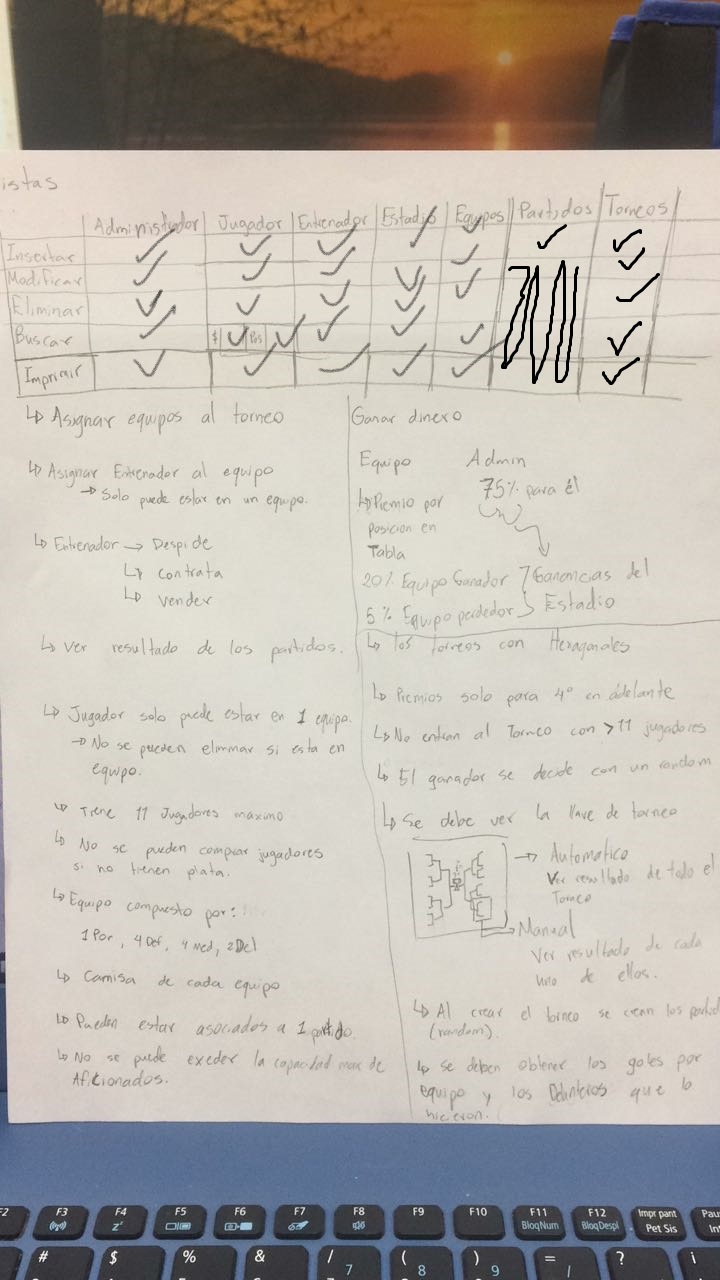 istas
Administrador Jugador Entrenador Estadio Equipos Partidos Torneos
Insertar
Modificar
Eliminar
Buscar $ Pos
Imprimir
↳ Asignar equipos al torneo
↳ Asignar Entrenador al equipo
→ Solo puede estar en un equipo.
↳ Entrenador → Despide
↳ contrata
↳ vender
↳ ver resultado de los partidos.
↳ Jugador solo puede estar en 1 equipo.
→ No se pueden eliminar si esta en
equipo.
↳ Tiene 11 Jugadores maximo
↳ No se pueden comprar jugadores
si no tienen plata.
↳ Equipo compuesto por:
1 Por, 4 Def, 4 Med, 2 Del
↳ Camisa de cada equipo
↳ Pueden estar asociados a 1 partido.
↳ No se puede exeder la capacidad max de
Aficionados.
Ganar dinero
Equipo Admin
↳ Premio por 75% para él
posicion en
Tabla
20% Equipo Ganador Ganancias del
5% Equipo perdedor Estadio
↳ los torneos con Hexagonales
↳ Premios solo para 4° en adelante
↳ No entran al Torneo con >11 jugadores
↳ El ganador se decide con un random
↳ Se debe ver la llave de torneo
→ Automatico
Ver resultado de todo el
Torneo
→ Manual
Ver resultado de cada
uno de ellos.
↳ Al crear el torneo se crean los partid
(random).
↳ se deben obtener los goles por
equipo y los Delanteros que lo
hicieron.
F2 F3 F4 F5 F6 F7 F8 F9 F10 F11 F12 Impr pant Pau
zz BloqNum BloqDespl Pet Sis In
# $ % & / 7 ( 8 ) 9 = / ? ¡